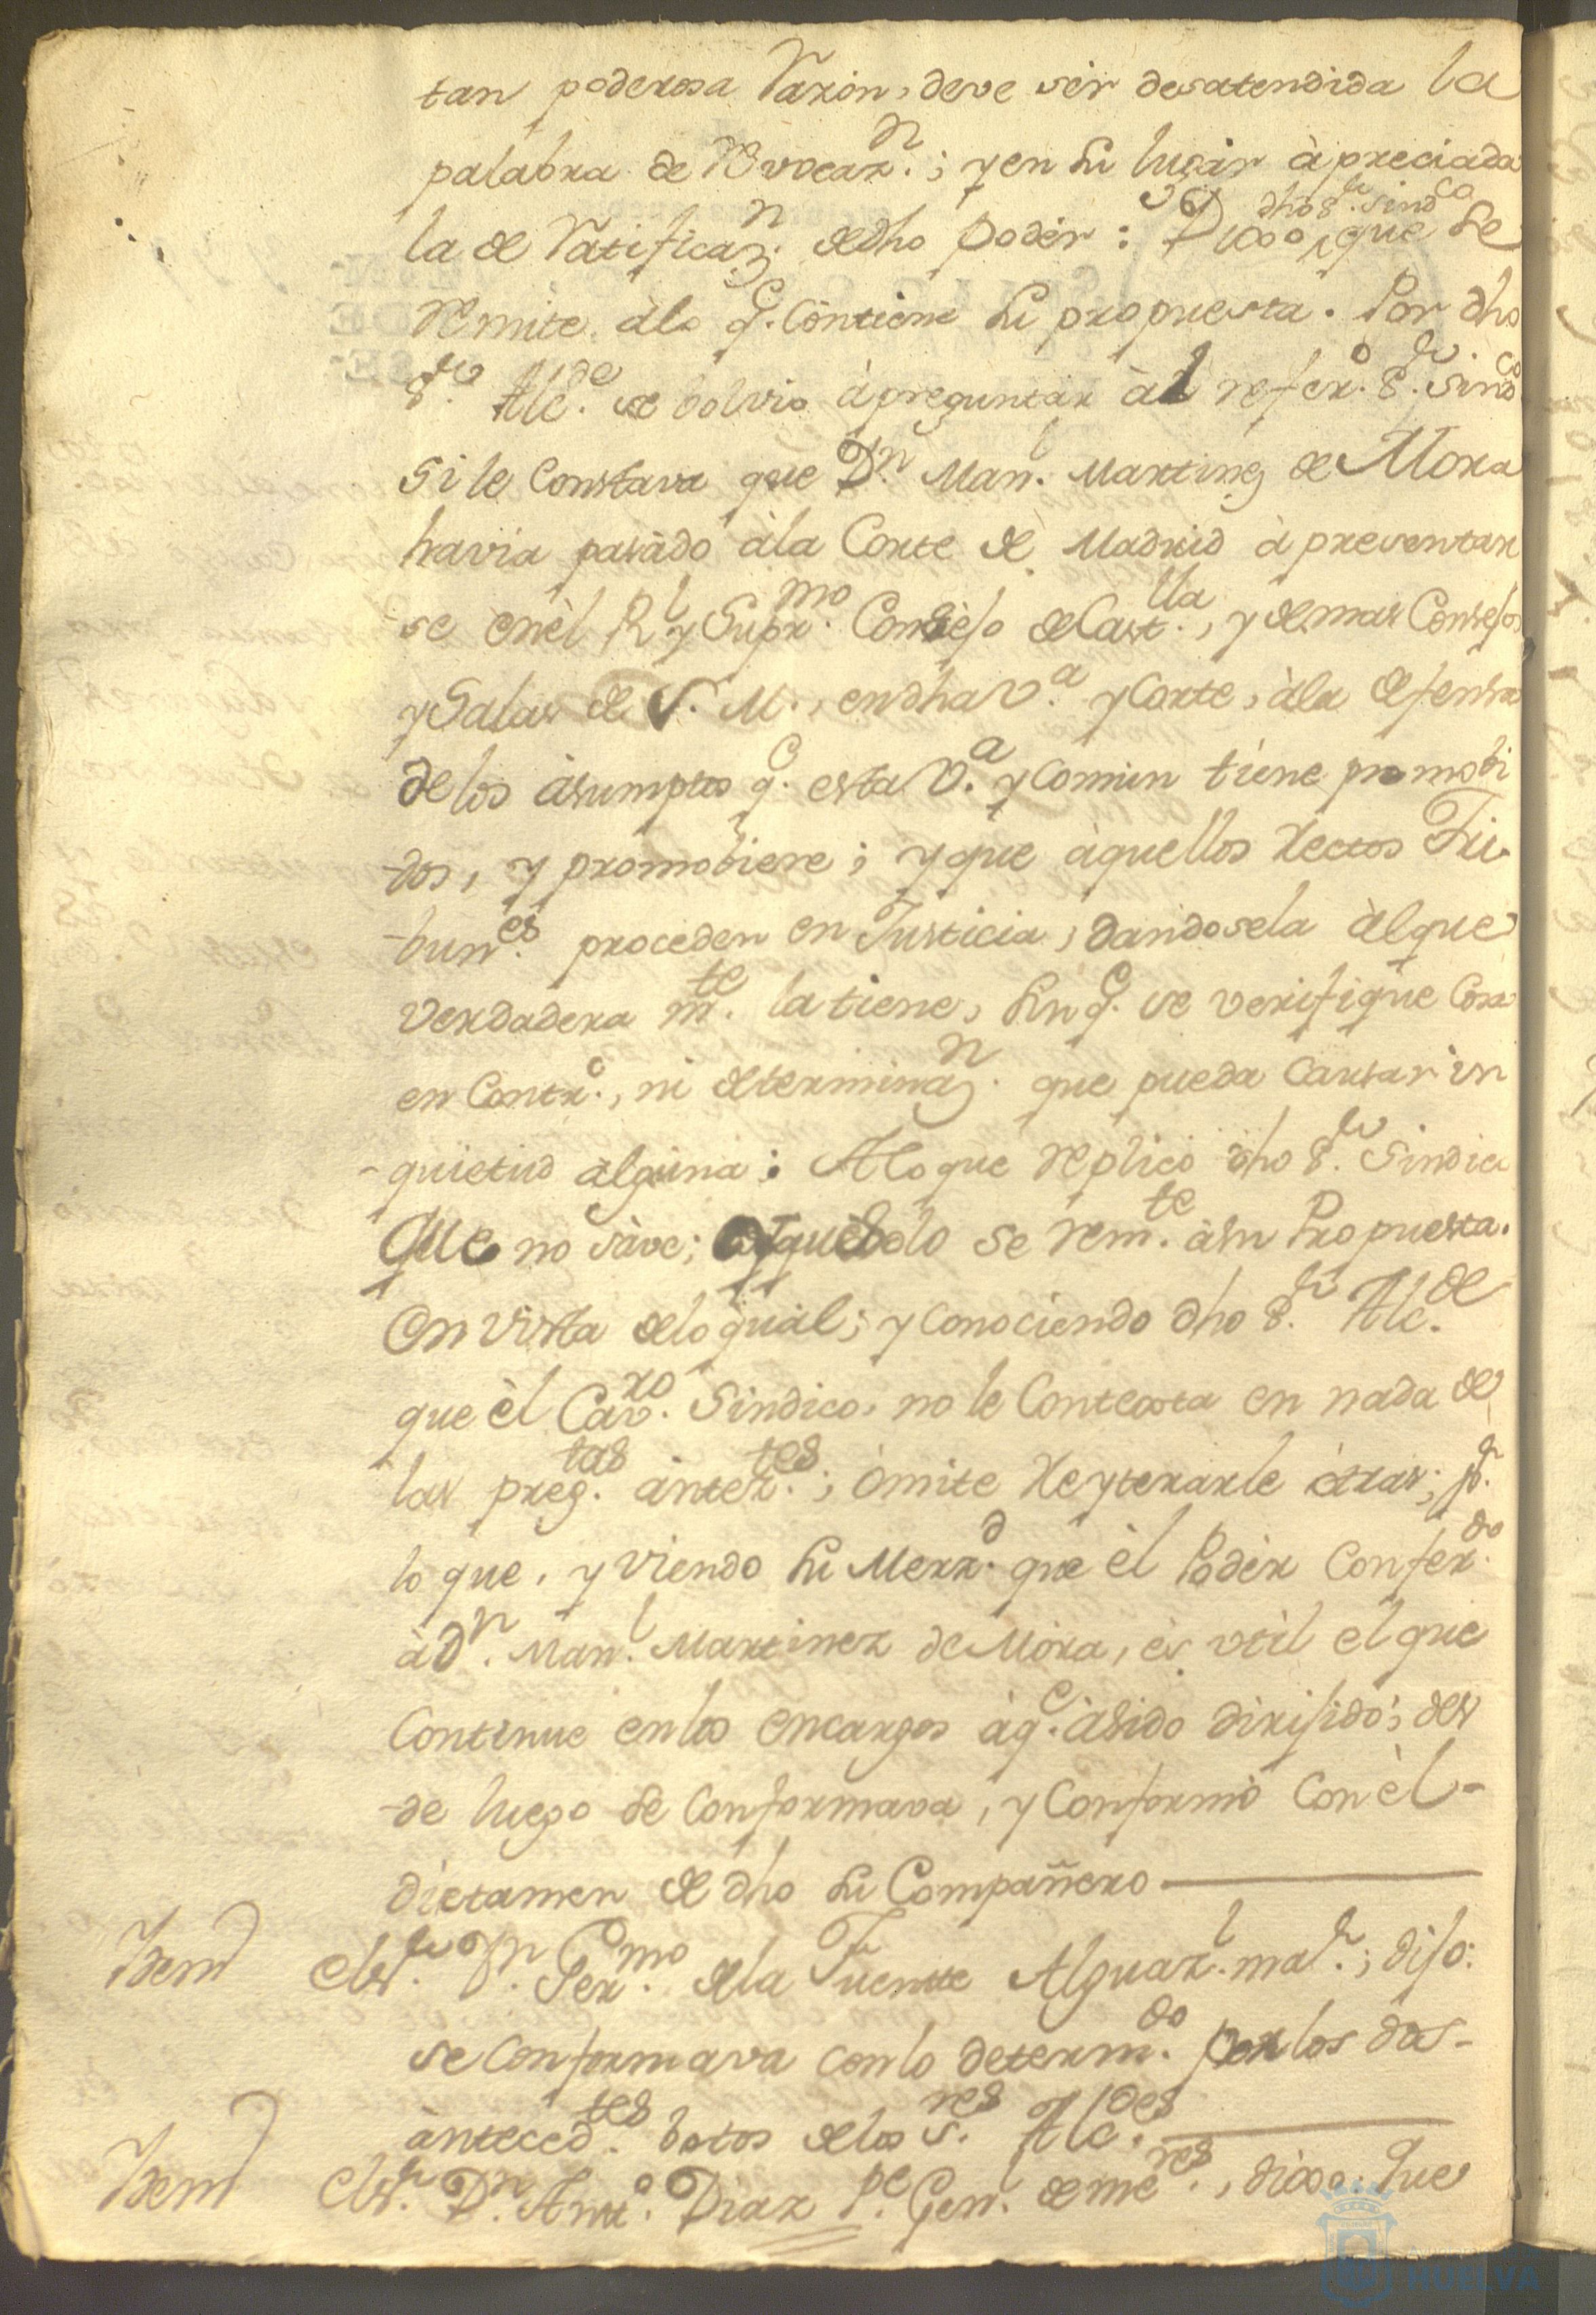 tan poderosa Razon, deve ser desatendida la
palabra de Revocaz.n; y en su lugar àpreciada
la de Ratificaz.n de dho Poder: Dixo dho S.r Sind.co que se
remite àlo q.e Contiene su propuesta. Por dho
S.r Alc.de se bolvio àpreguntar àl refer.o S.r Sind.co
si le Constava que D.n Man.l Martinez de Mora
havia pasàdo àla Corte de Madrid à presentar
se enèl R.l y Supr.mo Consejo de Cast.lla, y demas Consejos,
y Salas de S. M., en dha V.a y Corte, àla defensa
de los àsumptos q.e esta V.a y Comun tiene promobi
-dos, y promobiere; y que àquellos Rectos Tri-
-bun.es proceden en Justicia, dandosela àl que
verdadera m.te la tiene, sin q.e se verifique Cosa
en Contr.o, ni determinaz.n que pueda Causar in
-quietud àlguna: A lo que replicò dho S.r Sindico
Que no sàve; solo se rem.te àsu Propuesta.
En vista delo qual; y Conociendo dho S.r Alc.de
que èl Cav.ro Sindico, no le Contexta en nada de
las preg.tas ànter.tes; òmite Reyterarle òtras; p.r
lo que, y viendo su Merz.d que èl Podèr Confer.do
à D.n Man.l Martinez de Mora, ès util el que
Continue en los encargos àq.e àsido dirijido; des
-de luego se Conformava, y Conformò Con èl-
dictamen de dho su Compañero
Item El S.r D.n Ger.mo dela Fuente Alguaz.l ma.r; dijo:
se Conformava con lo determ.do por los dos-
ànteced.tes botos delos S.res Alc.des
Item El S.r D.n Ant.o Diaz P.e Gen.l de me.res, dixo: Que
HUELVA